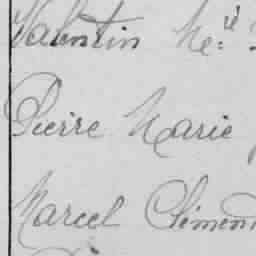 Valentin Me:
Pierre Marie
Marcel Clément